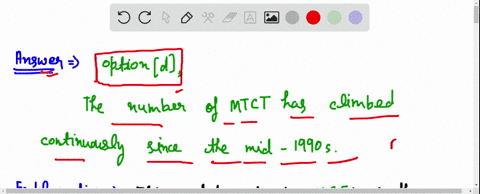 Answer ⇒ option [d],
The number of MTCT has climbed
continuously since the mid - 1990s.